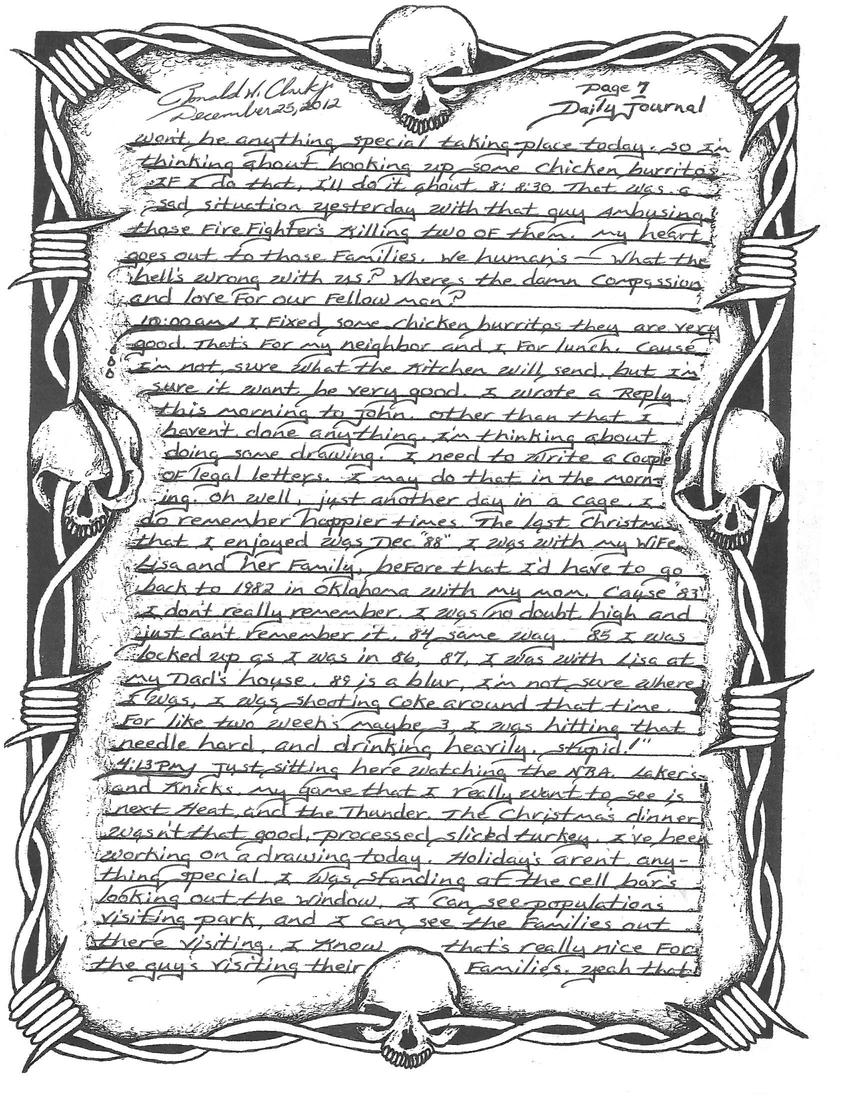 Ronald W. Clark Jr.
December 25, 2012
page 7
Daily Journal
won't be anything special taking place today. so I'm
thinking about hooking up some chicken burritos
IF I do that, I'll do it about 8: 8:30 That was a
sad situation yesterday with that guy Ambusing
those FireFighter's Killing two OF them. my heart
goes out to those Families. We human's — What the
hell's wrong with us? Where's the damn Compassion
and love For our Fellow man?
10:00am/ I Fixed some chicken burritos they are very
good. That's For my neighbor and I For lunch. Cause
I'm not sure what the Kitchen will send. but I'm
sure it want be very good. I wrote a Reply
this morning to John. other than that I
haven't done anything. I'm thinking about
doing some drawing. I need to Write a Couple
OF legal letters. I may do that in the morn-
ing. Oh well, just another day in a cage. I
do remember happier times. The last Christmas
that I enjoyed was Dec "88" I was with my WiFe
Lisa and her Family, beFore that I'd have to go
back to 1982 in Oklahoma with my mom. Cause "83"
I don't really remember. I was no doubt high and
just can't remember it. 84 same way 85 I was
locked up as I was in 86, 87, I was with Lisa at
my Dad's house. 89 is a blur, I'm not sure where
I was, I was shooting Coke around that time.
For like two week's maybe 3 I was hitting that
needle hard, and drinking heavily. stupid!"
4:13PM/ Just sitting here watching the NBA. Lakers
and Knicks. my game that I really want to see is
next Heat, and the Thunder. The Christmas dinner
wasn't that good, processed slicèd turkey. I've been
working on a drawing today. Holiday's arent any-
thing special. I was standing at the cell bar's
looking out the window, I can see populations
visiting park, and I can see the Families out
there visiting. I Know that's really nice For
the guy's visiting their Families. yeah that